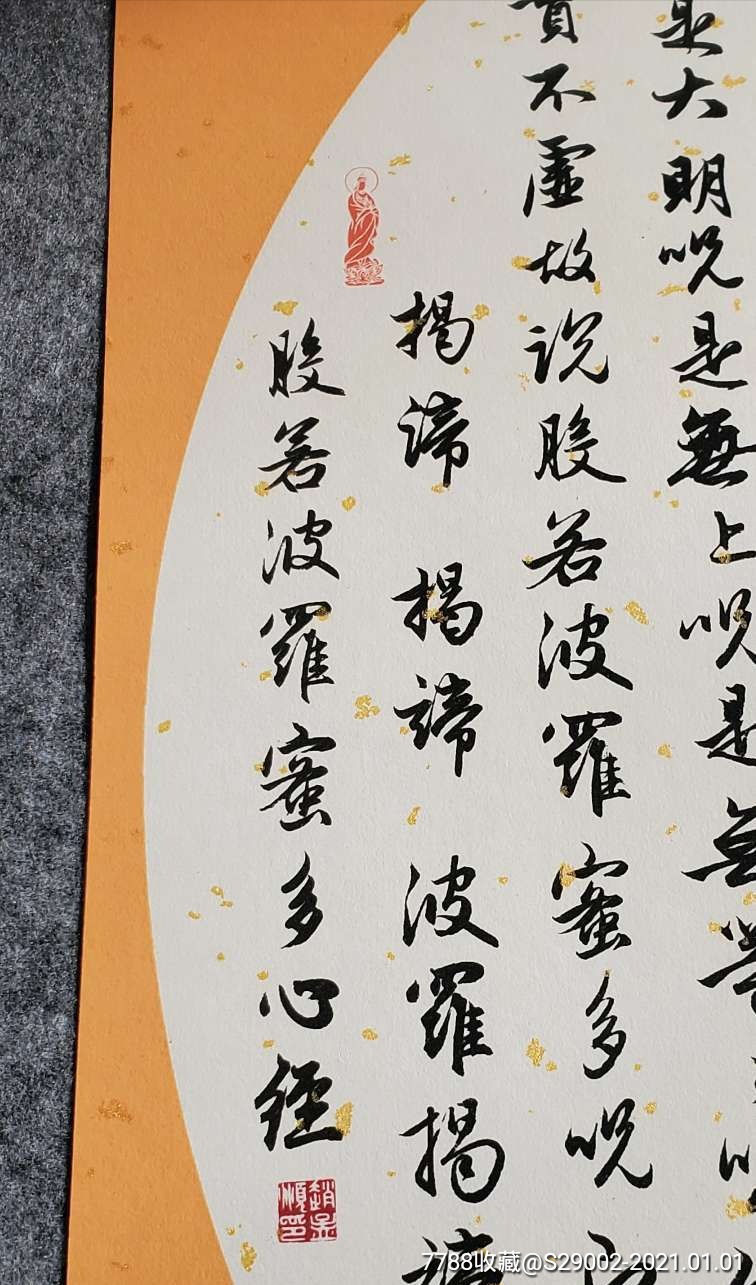 是大明呪是無上呪是無等
實不虛故說般若波羅蜜多呪
揭諦 揭諦 波羅揭諦
般若波羅蜜多心經
7788收藏@S29002-2021.01.01